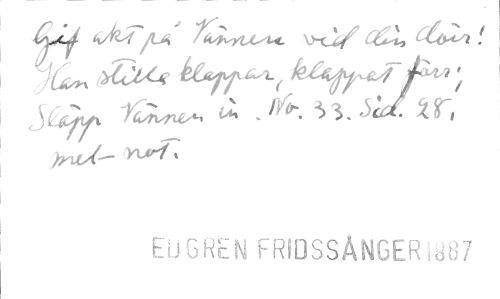 Gif akt på Vännen vid din dörr!
Han stilla klappar, klappat förr;
Släpp Vännen in. No. 33. Sid. 28.
mel-not.
EDGREN FRIDSSÅNGER 1887